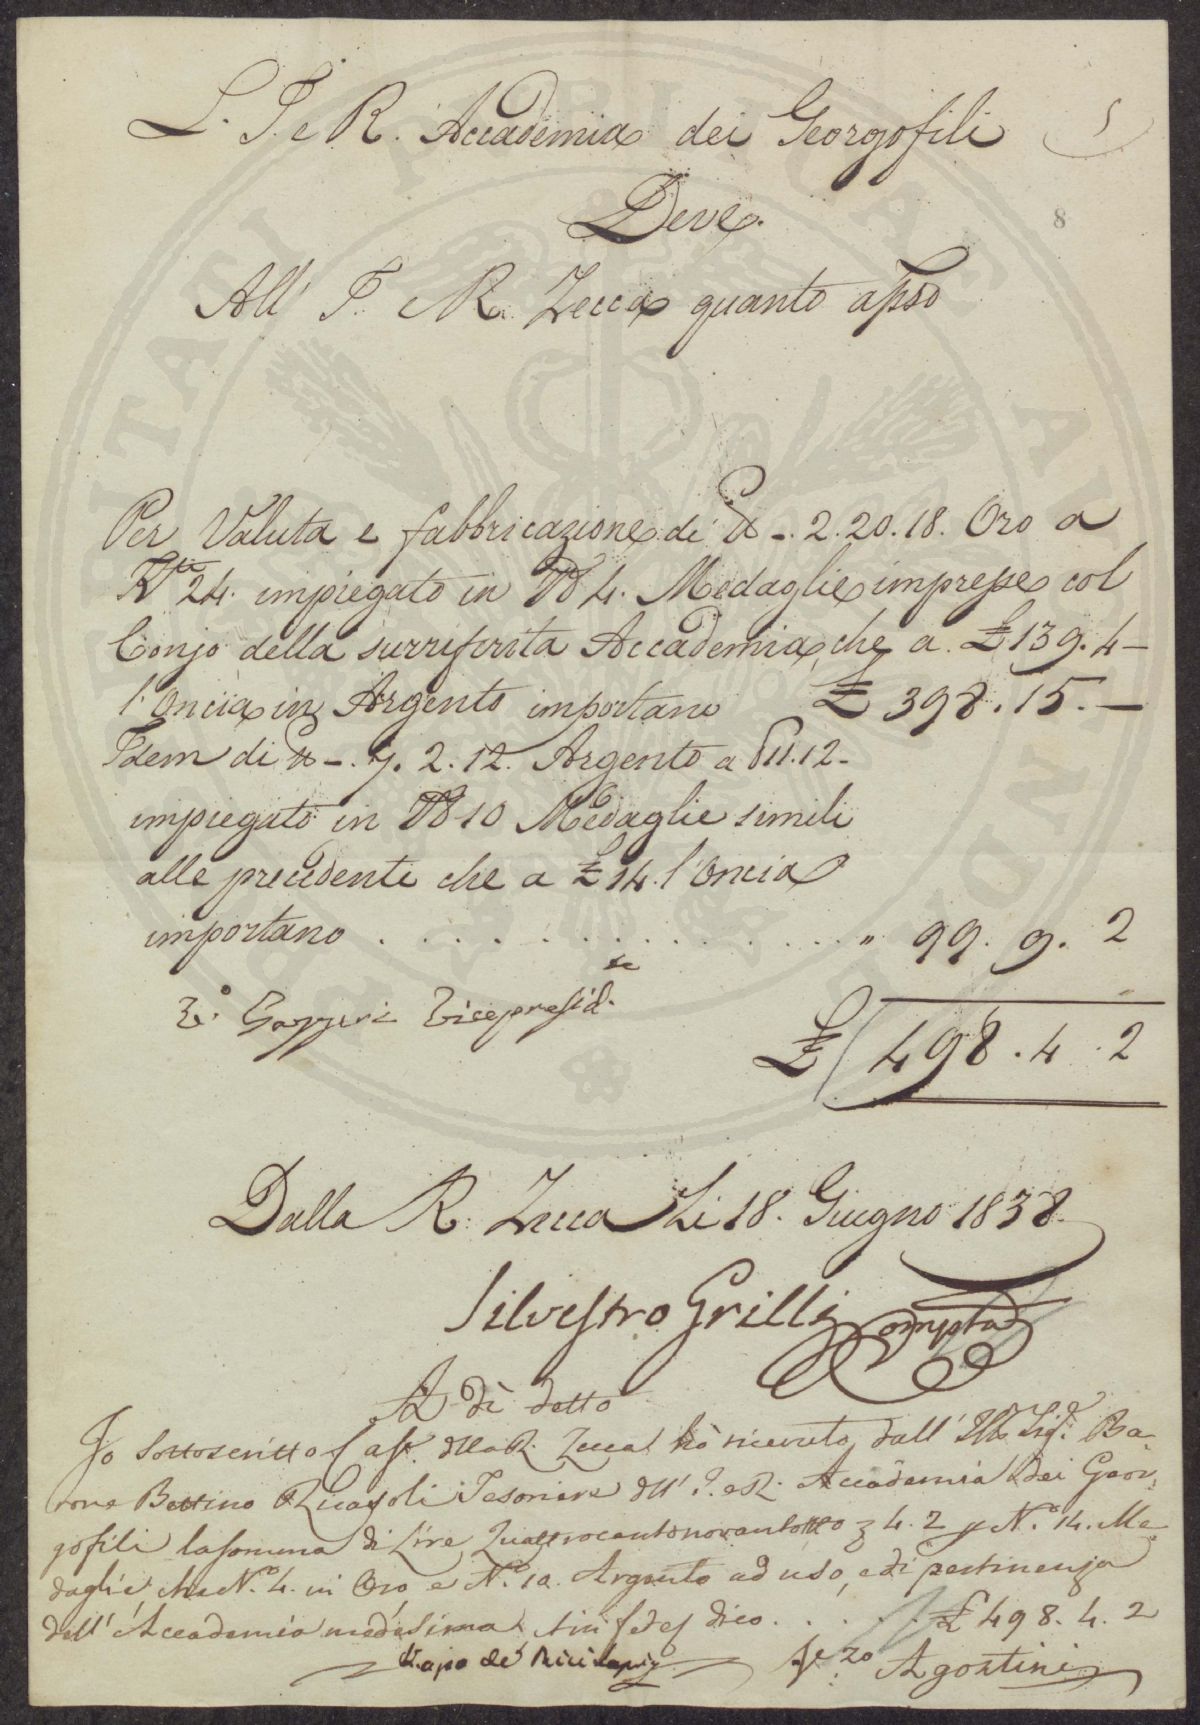 L. I. e R. Accademia dei Georgofili
8
Deve
All' I. e R. Zecca quanto app.o
Per Valuta e fabbricazione di ℔ -. 2. 20. 18. Oro a
K.ti 24. impiegato in N.o 4. Medaglie impresse col
Conjo della surriferita Accademia, che a £ 139. 4 -
l'Oncia in Argento importano £ 398. 15. -
Idem di ℔ -. 7. 2. 12. Argento a 11. 12 -
impiegato in N.o 10 Medaglie simili
alle precedenti che a £ 14. l'Oncia
importano . . . . . . . . . . . . . . . " 99. 9. 2
Gazzeri Vicepresid.te
£ 498. 4. 2
Dalla R. Zecca Li 18. Giugno 1838.
Silvestro Grilli Comp.ta
A dì detto
Io Sottoscritto Cass. della R. Zecca hò ricevuto dall' Ill. Sig. Ba-
rone Bettino Ricasoli Tesoriere dell' I. e R. Accademia dei Geor-
gofili la somma di Lire Quattrocentonovantotto 4. 2 p N.o 14. Me-
daglie, che N.o 4. in Oro, e N.o 10. Argento ad uso, e di pertinenza
dell' Accademia medesima in fede dico . . . . . £ 498. 4. 2
Agostini
UTILITATI PUBLICAE